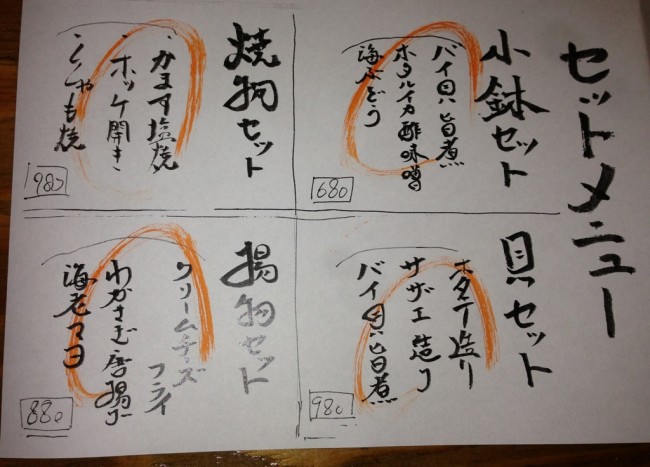 セットメニュー
小鉢セット
バイ貝旨煮
ホタルイカ酢味噌
海ぶどう
680
焼物セット
かます塩焼
ホッケ開き
ししゃも焼
980
貝セット
ホタテ造り
サザエ造り
バイ貝旨煮
980
揚物セット
クリームチーズ
フライ
わかさぎ唐揚げ
海老マヨ
880